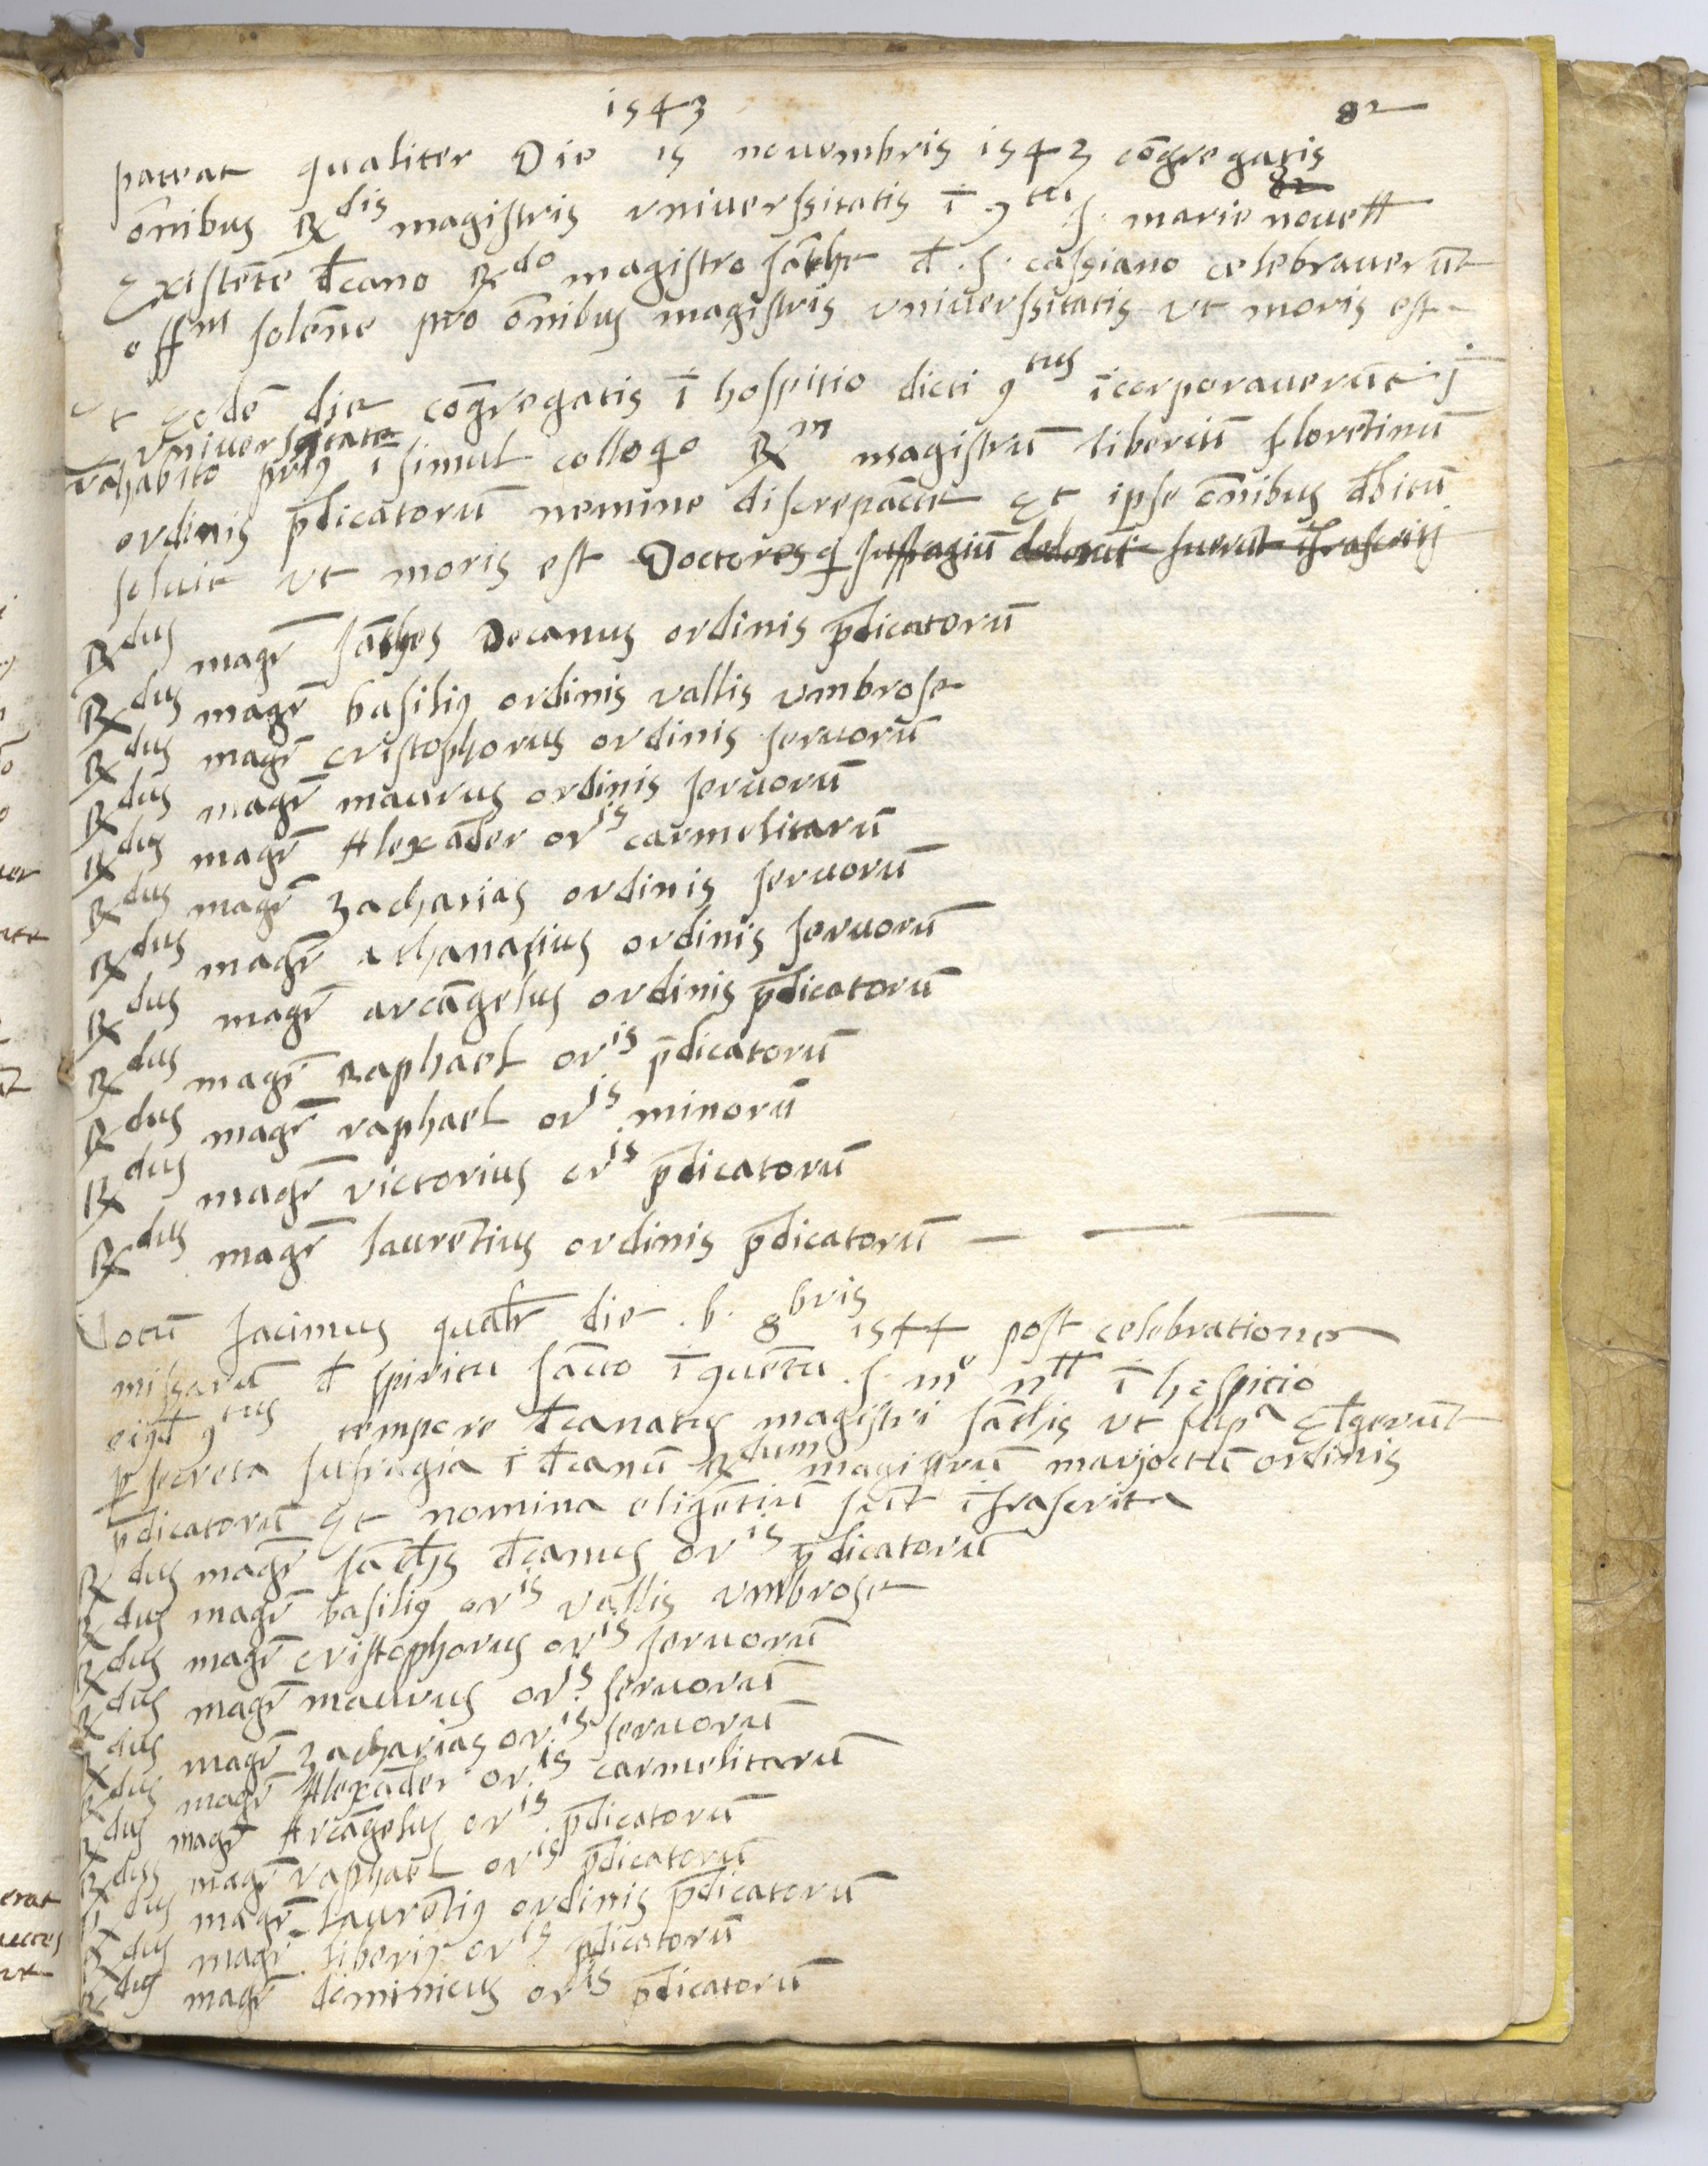 1543 82
pateat qualiter Die 15 nouembris 1543 cōgregatis
82
ōnibus Rdis magistris vniuerssitatis ī 9tu s. marie nouell
Existētē đcano Rdo magistro sāthe đ .s. cassiano celebrauerūt
offm solēne pro ōnibus magistris vniuerssitatis vt moris est
Et Eodē die cōgregatis ī hospitio dicti 9tus īcorporauerūt ī
vniuerssitate
habito pri9 ī simul colloqo Rm magistrū liberiū florētinū
ordinis p̄dicatorū nemine discrepāte Et ipse ōnibus đbitū
soluit vt moris est Doctores q suffragiū dederūt fuerūt īfrascriti
Rdus magr̄ sāthes Decanus ordinis p̄dicatorū
Rdus magr̄ basili9 ordinis vallis vmbrose
Rdus magr̄ cristophorus ordinis seruorū
Rdus magr̄ maurus ordinis seruorū
Rdus magr̄ Alexāder oris carmelitarū
Rdus magr̄ zacharias ordinis seruorū
Rdus magr̄ athanasius ordinis seruorū
Rdus magr̄ arcāgelus ordinis p̄dicatorū
Rdus magr̄ Raphael oris p̄dicatorū
Rdus magr̄ raphael oris minorū
Rdus magr̄ victorius oris p̄dicatorū
Rdus magr̄ laurētius ordinis p̄dicatorū
Notū facimus qualr̄ die .6. 8bris 1544 post celebrationes
missarū đ spiritu sācto ī 9uētu .s. me nll ī hospitio
eiqđ 9tus tempore đcanatus magistri sāctis vt supa Elgerūt
p secreta sufragia ī đcanū Rdum magistrū marioctū ordinis
p̄dicatorū Et nomina eligētiū sūt īfrascrita
Rdus magr̄ sāctis đcanus oris p̄dicatorū
Rdus magr̄ basili9 oris vallis vmbrose
Rdus magr̄ cristophorus oris seruorū
Rdus magr̄ maurus oris seruorū
Rdus magr̄ zacharias oris seruorū
Rdus magr̄ Alexāder oris carmelitarū
Rdus magr̄ Arcāgelus oris p̄dicatorū
Rdus magr̄ raphael oris p̄dicatorū
Rdus magr̄ laurēti9 ordinis p̄dicatorū
Rdus magr̄ liberi9 oris p̄dicatorū
Rdus magr̄ dominicus oris p̄dicatorū